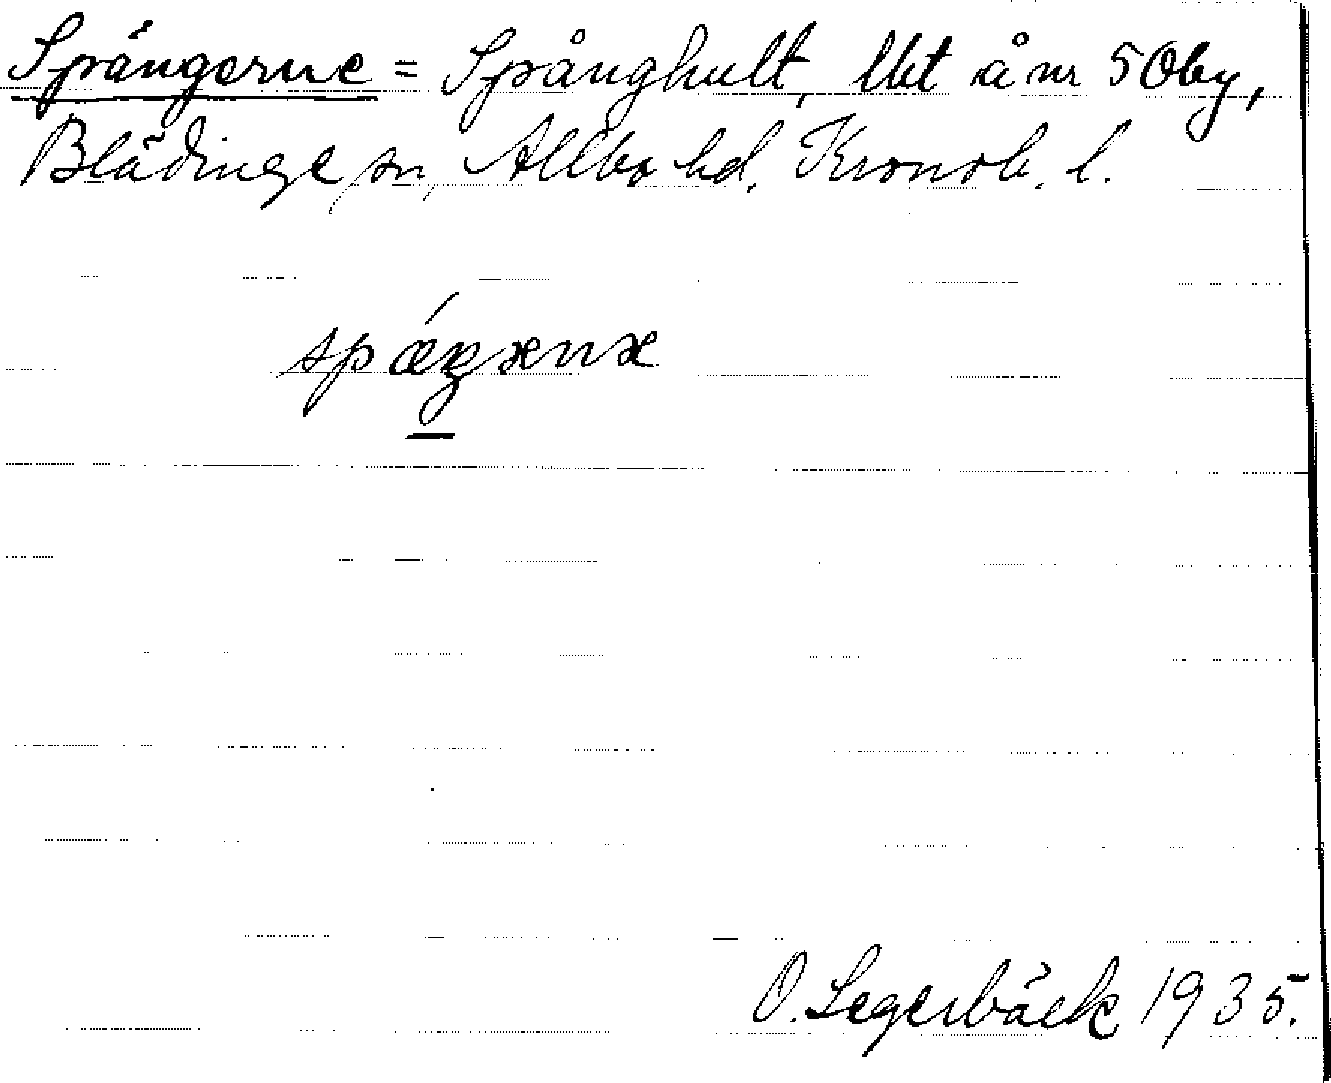 Spängerne = Spånghult, lht å nr 5 Oby,
Blädinge sn, Allbo hd, Kronob. l.
spæ´ŋərnə
O. Segerbäck 1935.